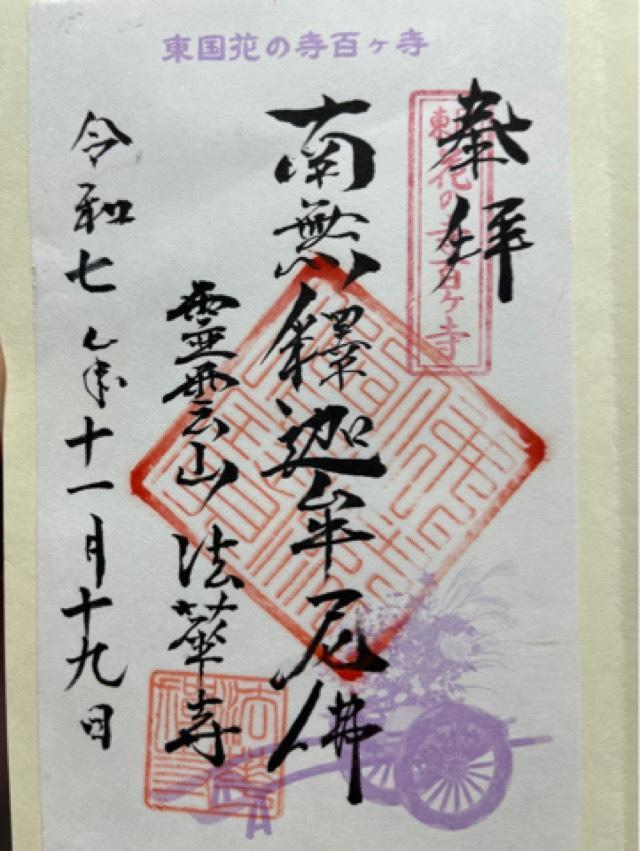 東国花の寺百ヶ寺
奉拝
東国花の寺百ヶ寺
南無釋迦牟尼佛
霊雲山法華寺
令和七年十一月十九日